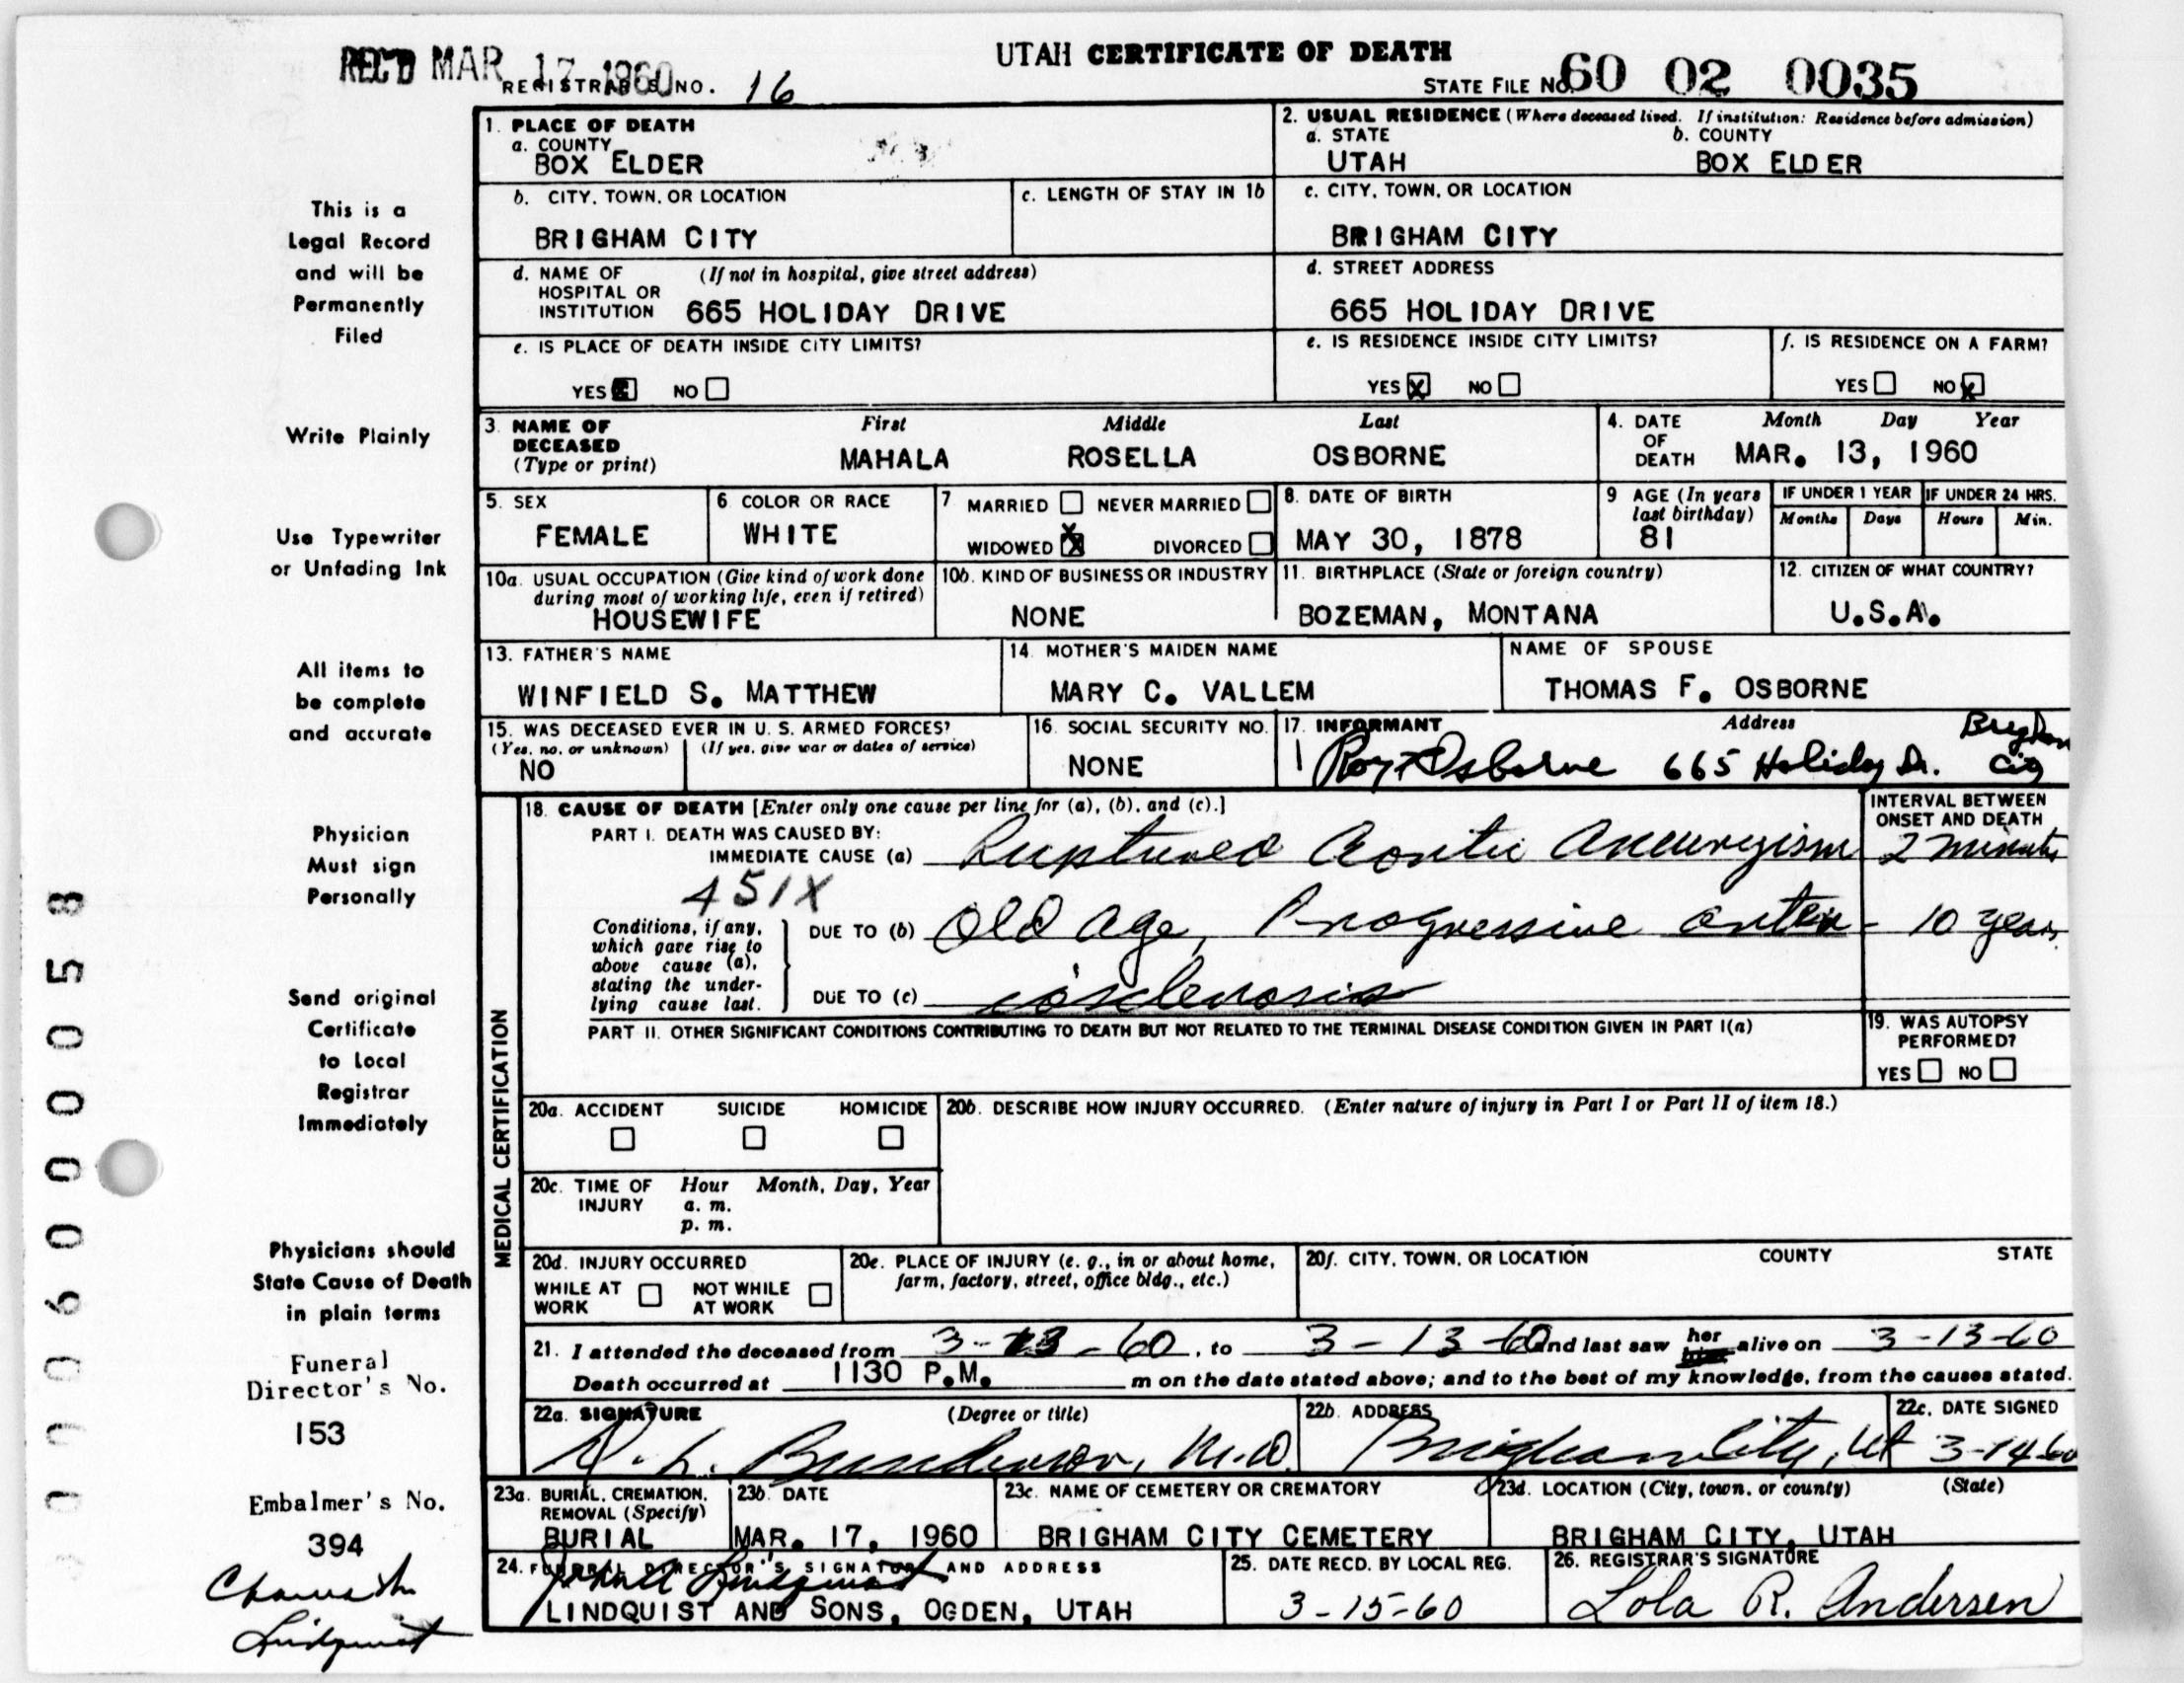 UTAH CERTIFICATE OF DEATH
REC'D MAR 17 1960
REGISTRAR'S NO. 16
STATE FILE NO. 60 02 0035
1. PLACE OF DEATH
a. COUNTY
BOX ELDER
2. USUAL RESIDENCE (Where deceased lived. If institution: Residence before admission)
a. STATE b. COUNTY
UTAH BOX ELDER
b. CITY, TOWN, OR LOCATION
BRIGHAM CITY
c. LENGTH OF STAY IN 1b
c. CITY, TOWN, OR LOCATION
BRIGHAM CITY
d. NAME OF HOSPITAL OR INSTITUTION (If not in hospital, give street address)
665 HOLIDAY DRIVE
d. STREET ADDRESS
665 HOLIDAY DRIVE
e. IS PLACE OF DEATH INSIDE CITY LIMITS?
YES X NO
e. IS RESIDENCE INSIDE CITY LIMITS?
YES X NO
f. IS RESIDENCE ON A FARM?
YES NO X
3. NAME OF DECEASED (Type or print)
First Middle Last
MAHALA ROSELLA OSBORNE
4. DATE OF DEATH
Month Day Year
MAR. 13, 1960
5. SEX
FEMALE
6. COLOR OR RACE
WHITE
7. MARRIED NEVER MARRIED
WIDOWED X DIVORCED
8. DATE OF BIRTH
MAY 30, 1878
9 AGE (In years last birthday)
81
IF UNDER 1 YEAR
Months Days
IF UNDER 24 HRS.
Hours Min.
10a. USUAL OCCUPATION (Give kind of work done during most of working life, even if retired)
HOUSEWIFE
10b. KIND OF BUSINESS OR INDUSTRY
NONE
11. BIRTHPLACE (State or foreign country)
BOZEMAN, MONTANA
12. CITIZEN OF WHAT COUNTRY?
U.S.A.
13. FATHER'S NAME
WINFIELD S. MATTHEW
14. MOTHER'S MAIDEN NAME
MARY C. VALLEM
NAME OF SPOUSE
THOMAS F. OSBORNE
15. WAS DECEASED EVER IN U. S. ARMED FORCES?
(Yes, no, or unknown) (If yes, give war or dates of service)
NO
16. SOCIAL SECURITY NO.
NONE
17. INFORMANT Address
Roy Osborne 665 Holiday Dr. Brigham City
MEDICAL CERTIFICATION
18. CAUSE OF DEATH [Enter only one cause per line for (a), (b), and (c).]
PART I. DEATH WAS CAUSED BY:
IMMEDIATE CAUSE (a) Ruptured Aortic Aneurygism
451X
Conditions, if any, which gave rise to above cause (a), stating the underlying cause last.
DUE TO (b) Old age, Progressive arter-
DUE TO (c) iosclerosis
INTERVAL BETWEEN ONSET AND DEATH
2 minutes
10 years
PART II. OTHER SIGNIFICANT CONDITIONS CONTRIBUTING TO DEATH BUT NOT RELATED TO THE TERMINAL DISEASE CONDITION GIVEN IN PART I(a)
19. WAS AUTOPSY PERFORMED?
YES NO
20a. ACCIDENT SUICIDE HOMICIDE
20b. DESCRIBE HOW INJURY OCCURRED. (Enter nature of injury in Part I or Part II of item 18.)
20c. TIME OF INJURY Hour Month, Day, Year
a. m.
p. m.
20d. INJURY OCCURRED
WHILE AT WORK NOT WHILE AT WORK
20e. PLACE OF INJURY (e. g., in or about home, farm, factory, street, office bldg., etc.)
20f. CITY, TOWN, OR LOCATION COUNTY STATE
21. I attended the deceased from 3-13-60, to 3-13-60 and last saw her him alive on 3-13-60
Death occurred at 1130 P.M. m on the date stated above; and to the best of my knowledge, from the causes stated.
22a. SIGNATURE (Degree or title)
Bunderson, M.D.
22b. ADDRESS
Brigham City, Ut
22c. DATE SIGNED
3-14-60
23a. BURIAL, CREMATION, REMOVAL (Specify)
BURIAL
23b. DATE
MAR. 17, 1960
23c. NAME OF CEMETERY OR CREMATORY
BRIGHAM CITY CEMETERY
23d. LOCATION (City, town, or county) (State)
BRIGHAM CITY, UTAH
24. FUNERAL DIRECTOR'S SIGNATURE AND ADDRESS
Lindquist
LINDQUIST AND SONS, OGDEN, UTAH
25. DATE RECD. BY LOCAL REG.
3-15-60
26. REGISTRAR'S SIGNATURE
Lola R. Andersen
This is a
Legal Record
and will be
Permanently
Filed
Write Plainly
Use Typewriter
or Unfading Ink
All items to
be complete
and accurate
Physician
Must sign
Personally
Send original
Certificate
to Local
Registrar
Immediately
Physicians should
State Cause of Death
in plain terms
Funeral
Director's No.
153
Embalmer's No.
394
Lindquist